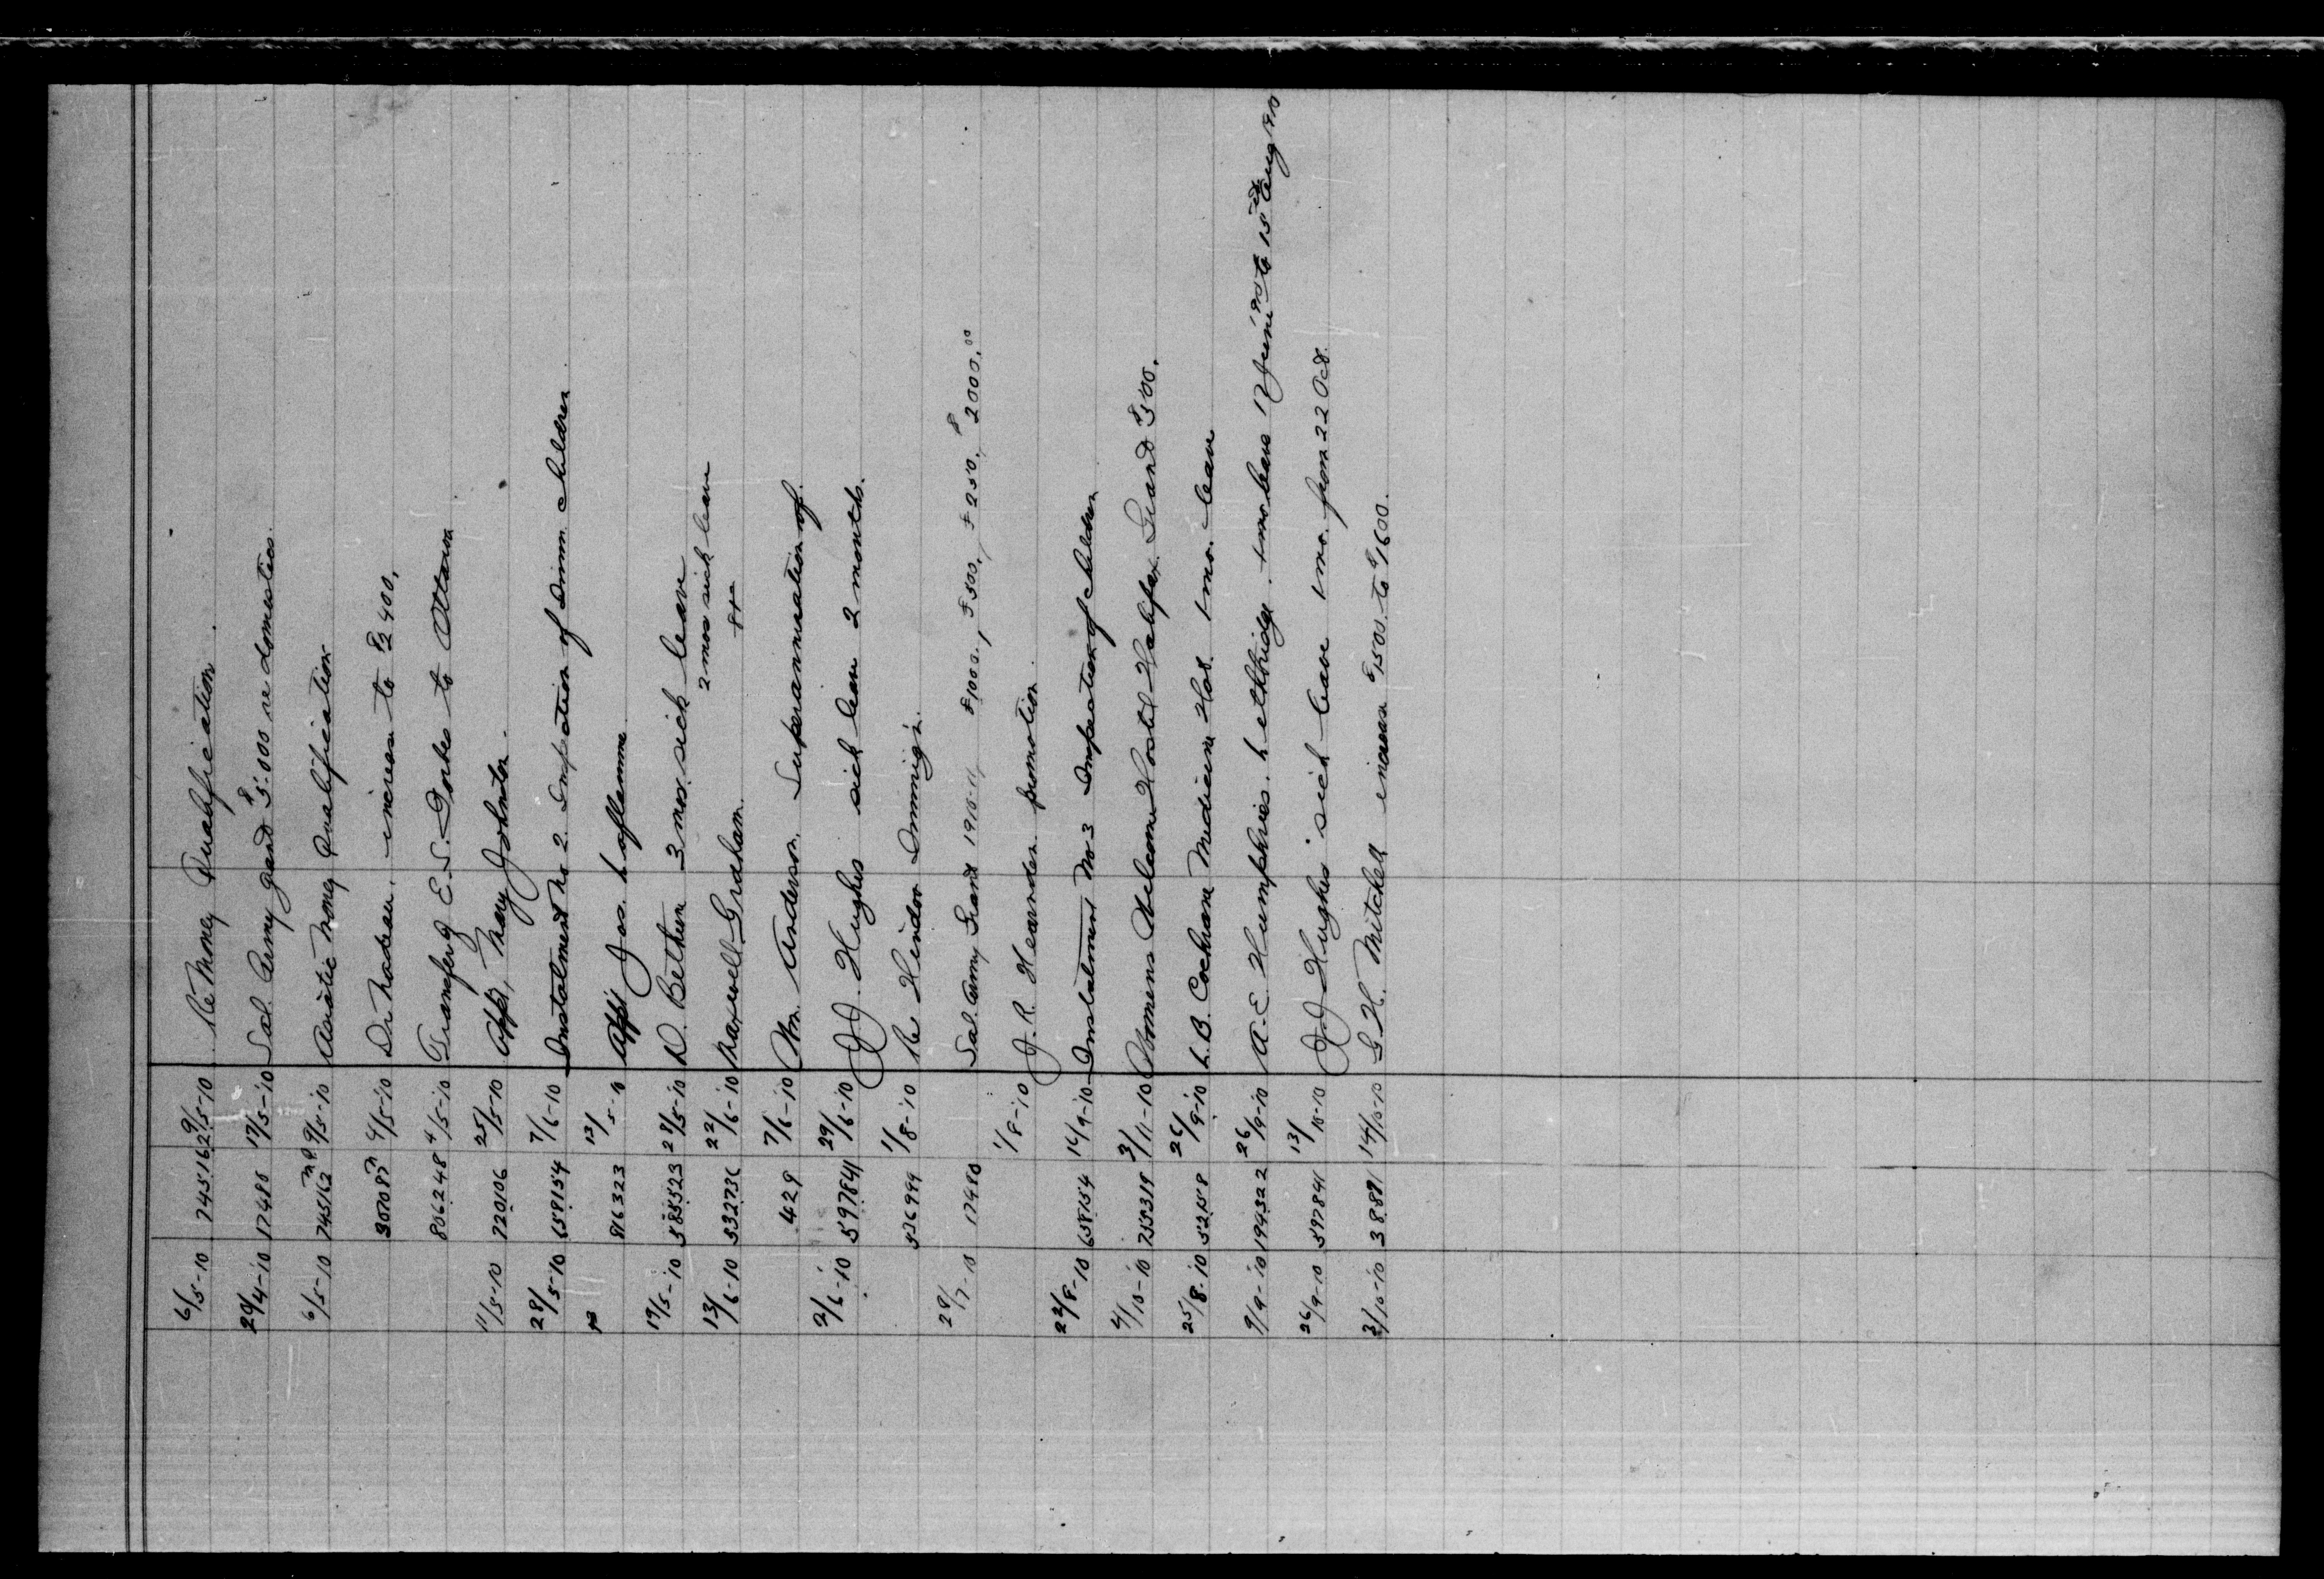 6/5-10 745162 9/5-10 Re Money Qualification.
29/4-10 17480 17/5-10 Sal. Army grant $5.000 re domestics.
6/5-10 745162 9/5-10 Asiatic Money Qualification
307087 4/5-10 Dr Nadeau. increase to $2400.
806248 4/5-10 Transfer of E.S. Forbes to Ottawa
11/5-10 720106 25/5-10 Appt, Mary Johnston.
28/5-10 658154 7/6-10 Instalment No 2. Inspection of Immn. children
816323 13/5-10 Appt Jos. Laflamme
19/5-10 585523 27/5-10 D. Bethune 3 mos. sick leave
13/6-10 532736 22/6-10 Maxwell Graham. 2 mos sick leave
429 7/6-10 Wm Anderson. Superannuation of.
2/6-10 597841 29/6-10 J.J. Hughes sick leave 2 months.
536999 1/8-10 Re Hindoo Immig'n.
28/7-10 17480 Sal. Army Grant 1910-11 $1000., $500, $250, $2000.00
1/8-10 J.R. Hearnden promotion.
22/8-10 658154 16/9-10 Instalment No 3 Inspection of children
4/10-10 755319 3/11-10 Womens Welcome Hostel Halifax Grant $500.
25/8-10 525258 26/9-10 L.B. Cochrane Medicine Hat. 1 mo. leave
9/9-10 194322 26/9-10 A.E. Humphries. Lethbridge. 1 mo leave 17 June 1910 to 15th Aug 1910
26/9-10 597841 13/10-10 J.J. Hughes sick leave 1 mo. from 22 Oct.
3/10-10 38891 14/10-10 G.H. Mitchell increase $1500 to $1600.